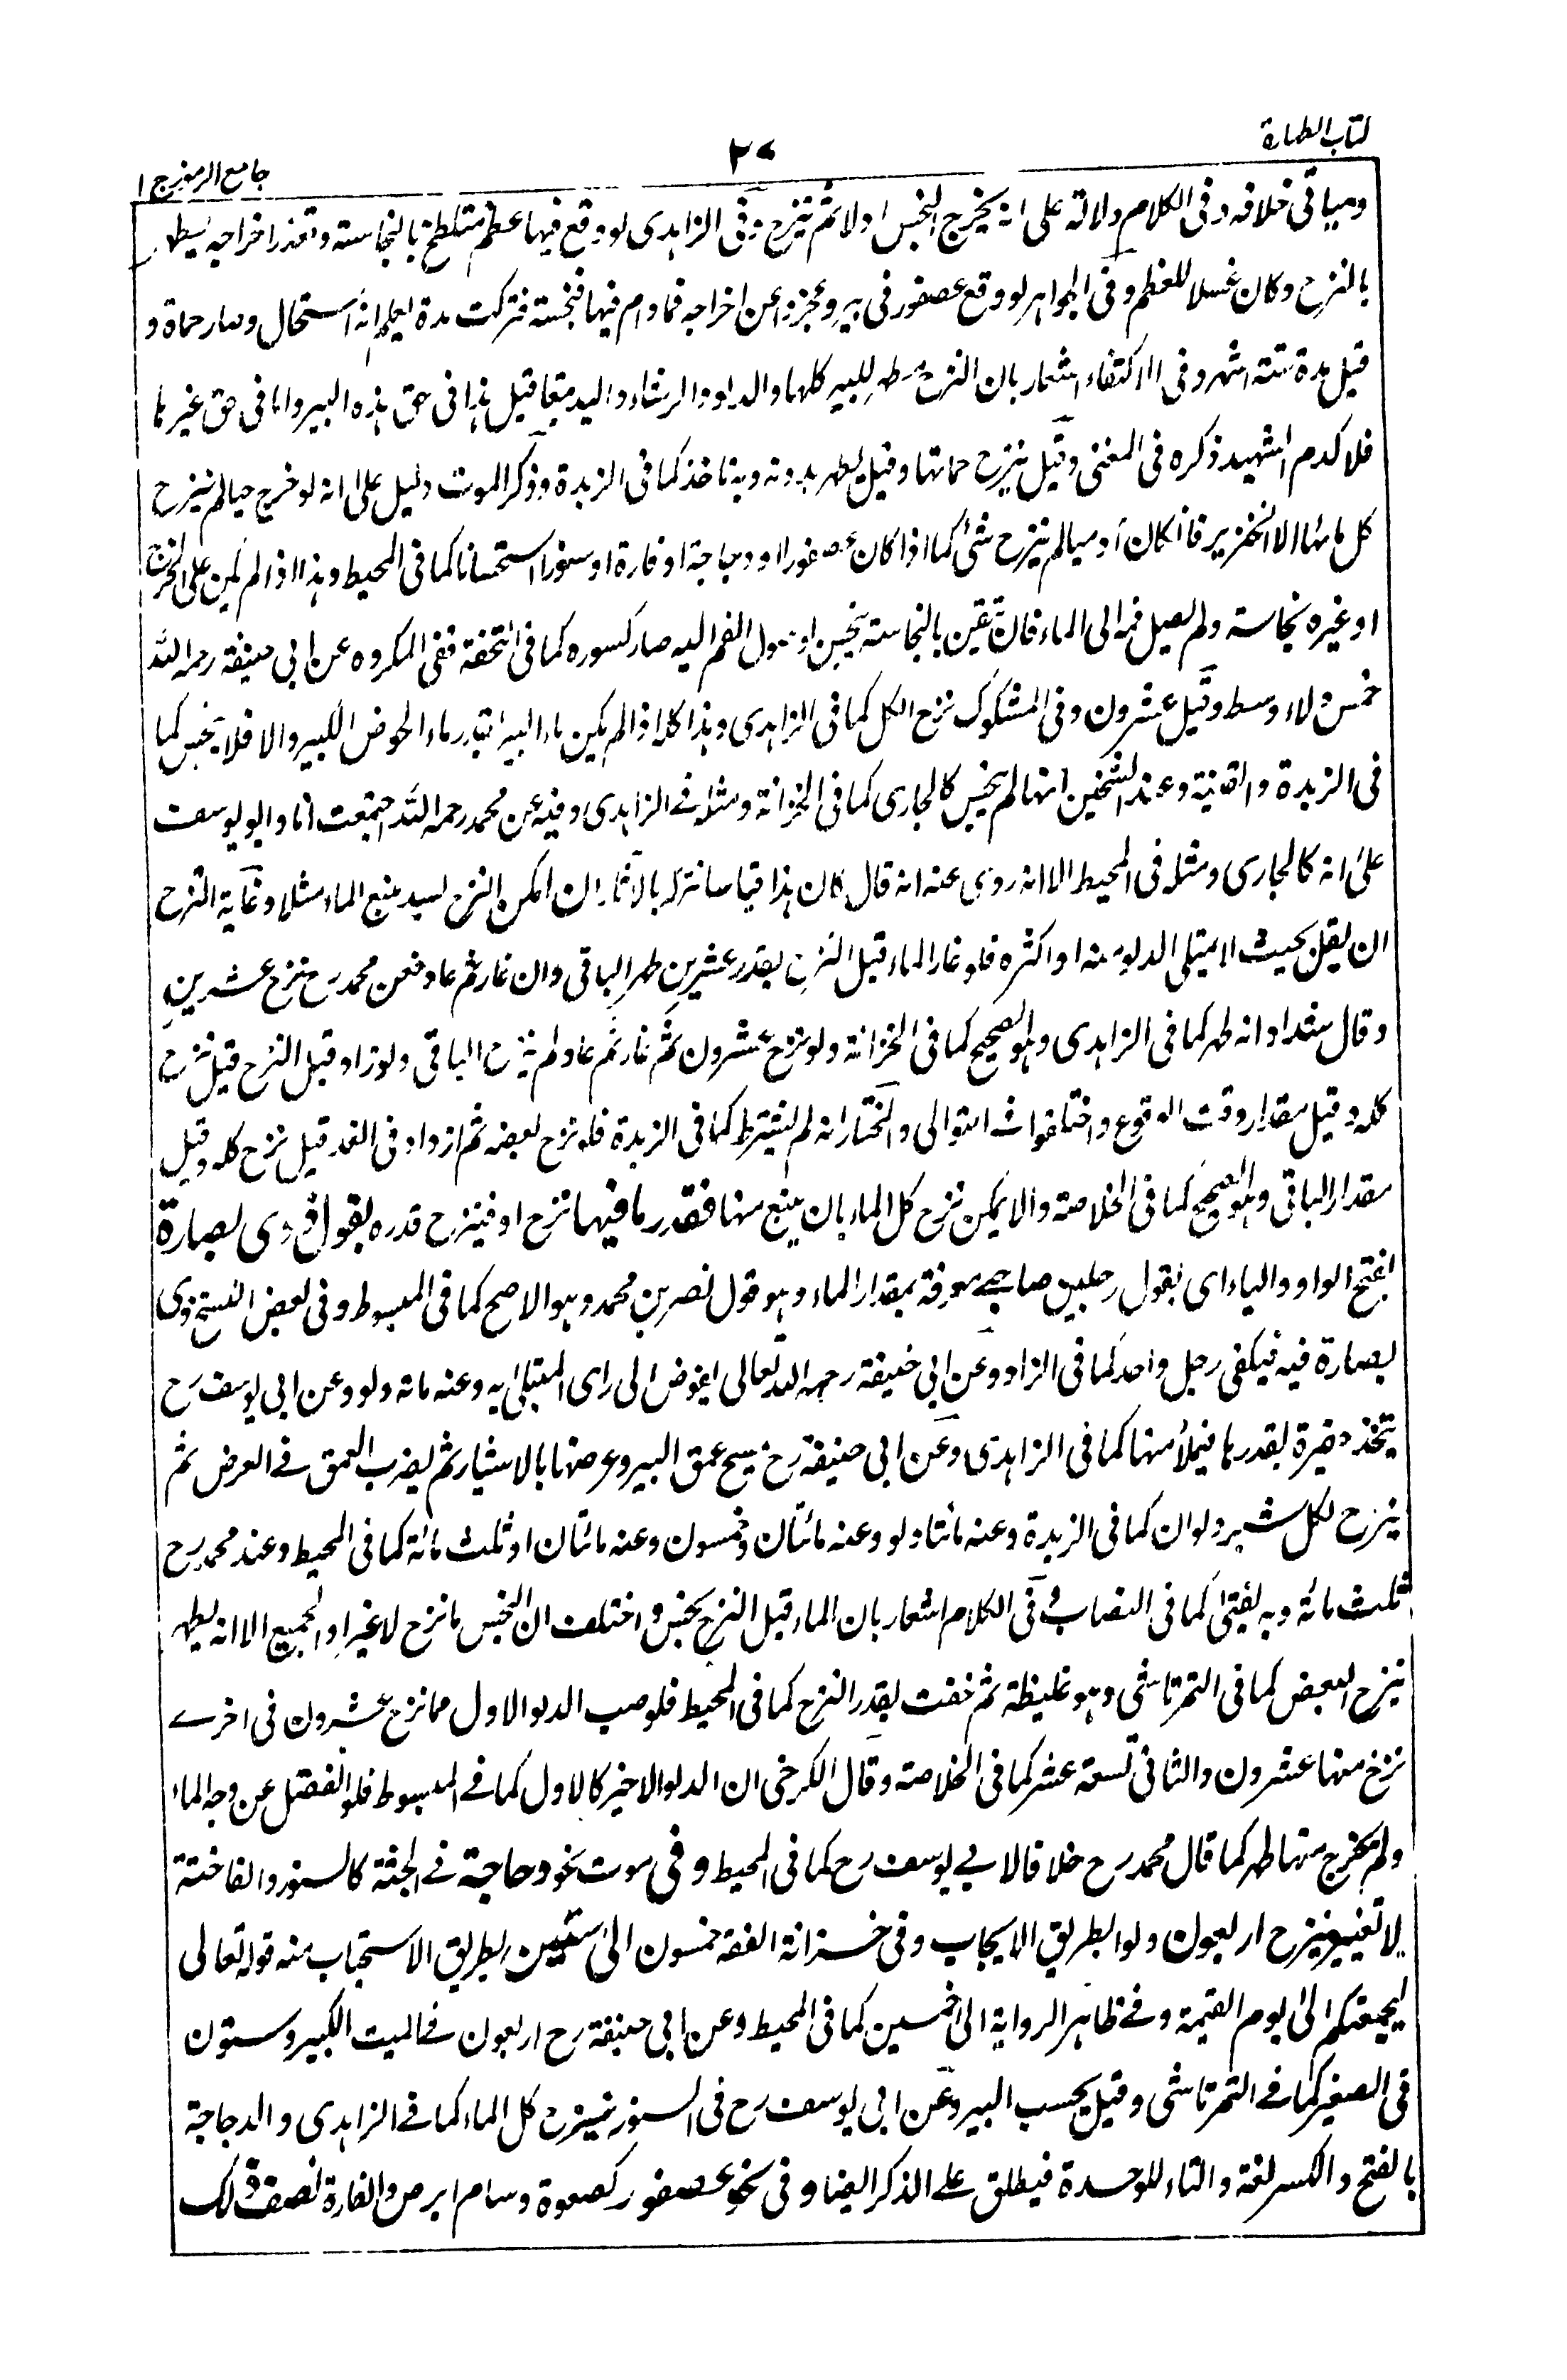 كتاب الطهارة
٢٧
جامع الرموز ج ١
وسياتى خلافه وفى الكلام دلالة على انه يخرج النجس اولا ثم ينزح وفى الزاهدى لو وقع فيها عظم متلطخ بالنجاسة وتعذر اخراجه يطهر
بالنزح وكان غسلا للعظم وفى الجواهر لو وقع عصفور فى بير وعجزوا عن اخراجه فما دام فيها فنجسة فتركت مدة يعلم انه استحال وصار حماة و
قيل مدة ستة اشهر وفى الاكتفاء اشعار بان النزح مطهر للبير كلها والدلو والرشاء واليد تبعا قيل هذا فى حق هذه البير واما فى حق غيرها
فلا كدم الشهيد ذكره فى المغنى وقيل ينزح حماتها وقيل يطهر بدونه وبه ناخذ كما فى الزبدة وذكر الموت دليل على انه لو خرج حيا لم ينزح
كل مائها الا الخنزير فان كان آدميا لم ينزح شئ كما اذا كان عصفورا او دجاجة او فارة او سنورا استحسانا كما فى المحيط وهذا اذا لم يكن على
او غيره نجاسة ولم يصل فمه الى الماء فان تيقن بالنجاسة ينجس او بوصول الفم اليه صار كسوره كما فى التحفة ففى المكروه عن ابى حنيفة رحمه الله
خمس دلاء وسط وقيل عشرون وفى المشكوك نزح الكل كما فى الزاهدى وهذا كله اذا لم يكن ماء البير بقدر ماء الحوض الكبير والا فلا ينجس كما
فى الزبدة والقنية وعند الشيخين انها لم ينجس كالجارى كما فى الخزانة ومثله فے الزاهدى وفيه عن محمد رحمه الله اجتمعت انا وابو يوسف
على انه كالجارى ومثله فى المحيط الا انه روى عنه انه قال كان هذا قياسا نتركه بالآثار ان امكن النزح بسد منبع الماء مثلا وغاية النزح
ان يقل بحيث لا يمتلى الدلو منه او اكثره فلو غار الماء قبل النزح بقدر عشرين طهر الباقى وان غار ثم عاد فعن محمد رح نزح عشرين
وقال شداد انه طهر كما فى الزاهدى وهو الصحيح كما فى الخزانة ولو نزح عشرون ثم غار ثم عاد لم ينزح الباقى ولو زاد قبل النزح قيل نزح
كله وقيل مقدار وقت الوقوع واختلفوا فى التوالى والمختار انه لم يشترط كما فى الزبدة فلو نزح بعضه ثم ازداد فى الغد قيل نزح كله وقيل
مقدار الباقى وهو الصحيح كما فى الخلاصة والا يمكن نزح كل الماء بان ينبع منها فقدر ما فيها نزح او فينزح قدره بقول ذوى بصارة
بفتح الواو والياء اى بقول رجلين صاحبى معرفة بمقدار الماء وهو قول نصر بن محمد وهو الاصح كما فى المبسوط وفى بعض النسخ ذوى
بصارة فيه فيكفى رجل واحد كما فى الزاد وعن ابى حنيفة رحمه الله تعالى يفوض الى راى المبتلى به وعنه مائة دلو وعن ابى يوسف رح
يتخذ حفيرة بقدرها فيملأ منها كما فى الزاهدى وعن ابى حنيفة رح يمسح عمق البير وعرضها بالاشبار ثم يضرب العمق فے العرض ثم
ينزح لكل شبر دلوان كما فى الزبدة وعنه مائتا دلو وعنه مائتان وخمسون وعنه مائتان او ثلث مائة كما فى المحيط وعند محمد رح
ثلث مائة وبه يفتى كما فى النصاب وفى الكلام اشعار بان الماء قبل النزح نجس واختلف ان النجس ما نزح لا غير او الجميع الا انه يطهر
بنزح البعض كما فى التمرتاشى وهو غليظة ثم خفت بقدر النزح كما فى المحيط فلو صب الدلو الاول مما نزح عشرون فى اخرے
نزح منها عشرون والثانى تسعة عشر كما فى الخلاصة وقال الكرخى ان الدلو الاخير كالاول كما فے المبسوط فلو انفصل عن وجه الماء
ولم يخرج منها طهر كما قال محمد رح خلافا لابے يوسف رح كما فى المحيط وفى موت نحو دجاجة فے الجثة كالسنور والفاختة
لا تغيير ينزح اربعون دلوا بطريق الايجاب وفى خزانة الفقه خمسون الى ستين بطريق الاستحباب منه قوله تعالى
ليجمعنكم الى يوم القيمة وفے ظاهر الرواية الى خمسين كما فى المحيط وعن ابى حنيفة رح اربعون فے الميت الكبير وستون
فى الصغير كما فے التمرتاشى وقيل يحسب البير وعن ابى يوسف رح فى السنور ينزح كل الماء كما فے الزاهدى والدجاجة
بالفتح والكسر لغة والتاء للوحدة فيطلق على الذكر ايضا وفى نحو عصفور كصعوة وسام ابرص والفارة نصف ذلك